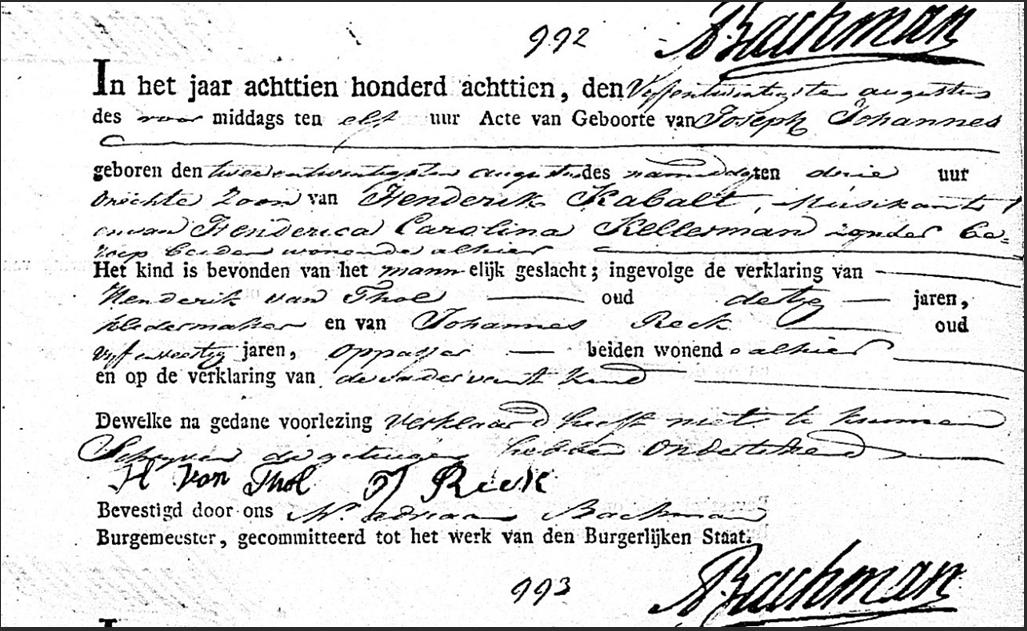 992
ABachman
In het jaar achttien honderd achttien, den Vyfentwintigsten augustus
des voor middags ten elf uur Acte van Geboorte van Joseph Johannes
geboren den tweeentwintigsten augustus des namiddags ten drie uur
Echte Zoon van Henderik Kabalt, Musikant
en van Henderica Carolina Kellerman zonder be-
roep beiden wonende alhier
Het kind is bevonden van het mannelijk geslacht; ingevolge de verklaring van
Henderik van Thol oud dertig jaren,
kledermaker en van Johannes Reek oud
vyfenveertig jaren, oppasser beiden wonende alhier
en op de verklaring van de vader van't kind
Dewelke na gedane voorlezing verklaard heeft niet te kunnen
Schryven de getuigen hebben Ondertekend
H Van Thol J Reek
Bevestigd door ons Mr. adriaan Bachman
Burgemeester, gecommitteerd tot het werk van den Burgerlijken Staat.
993
ABachman